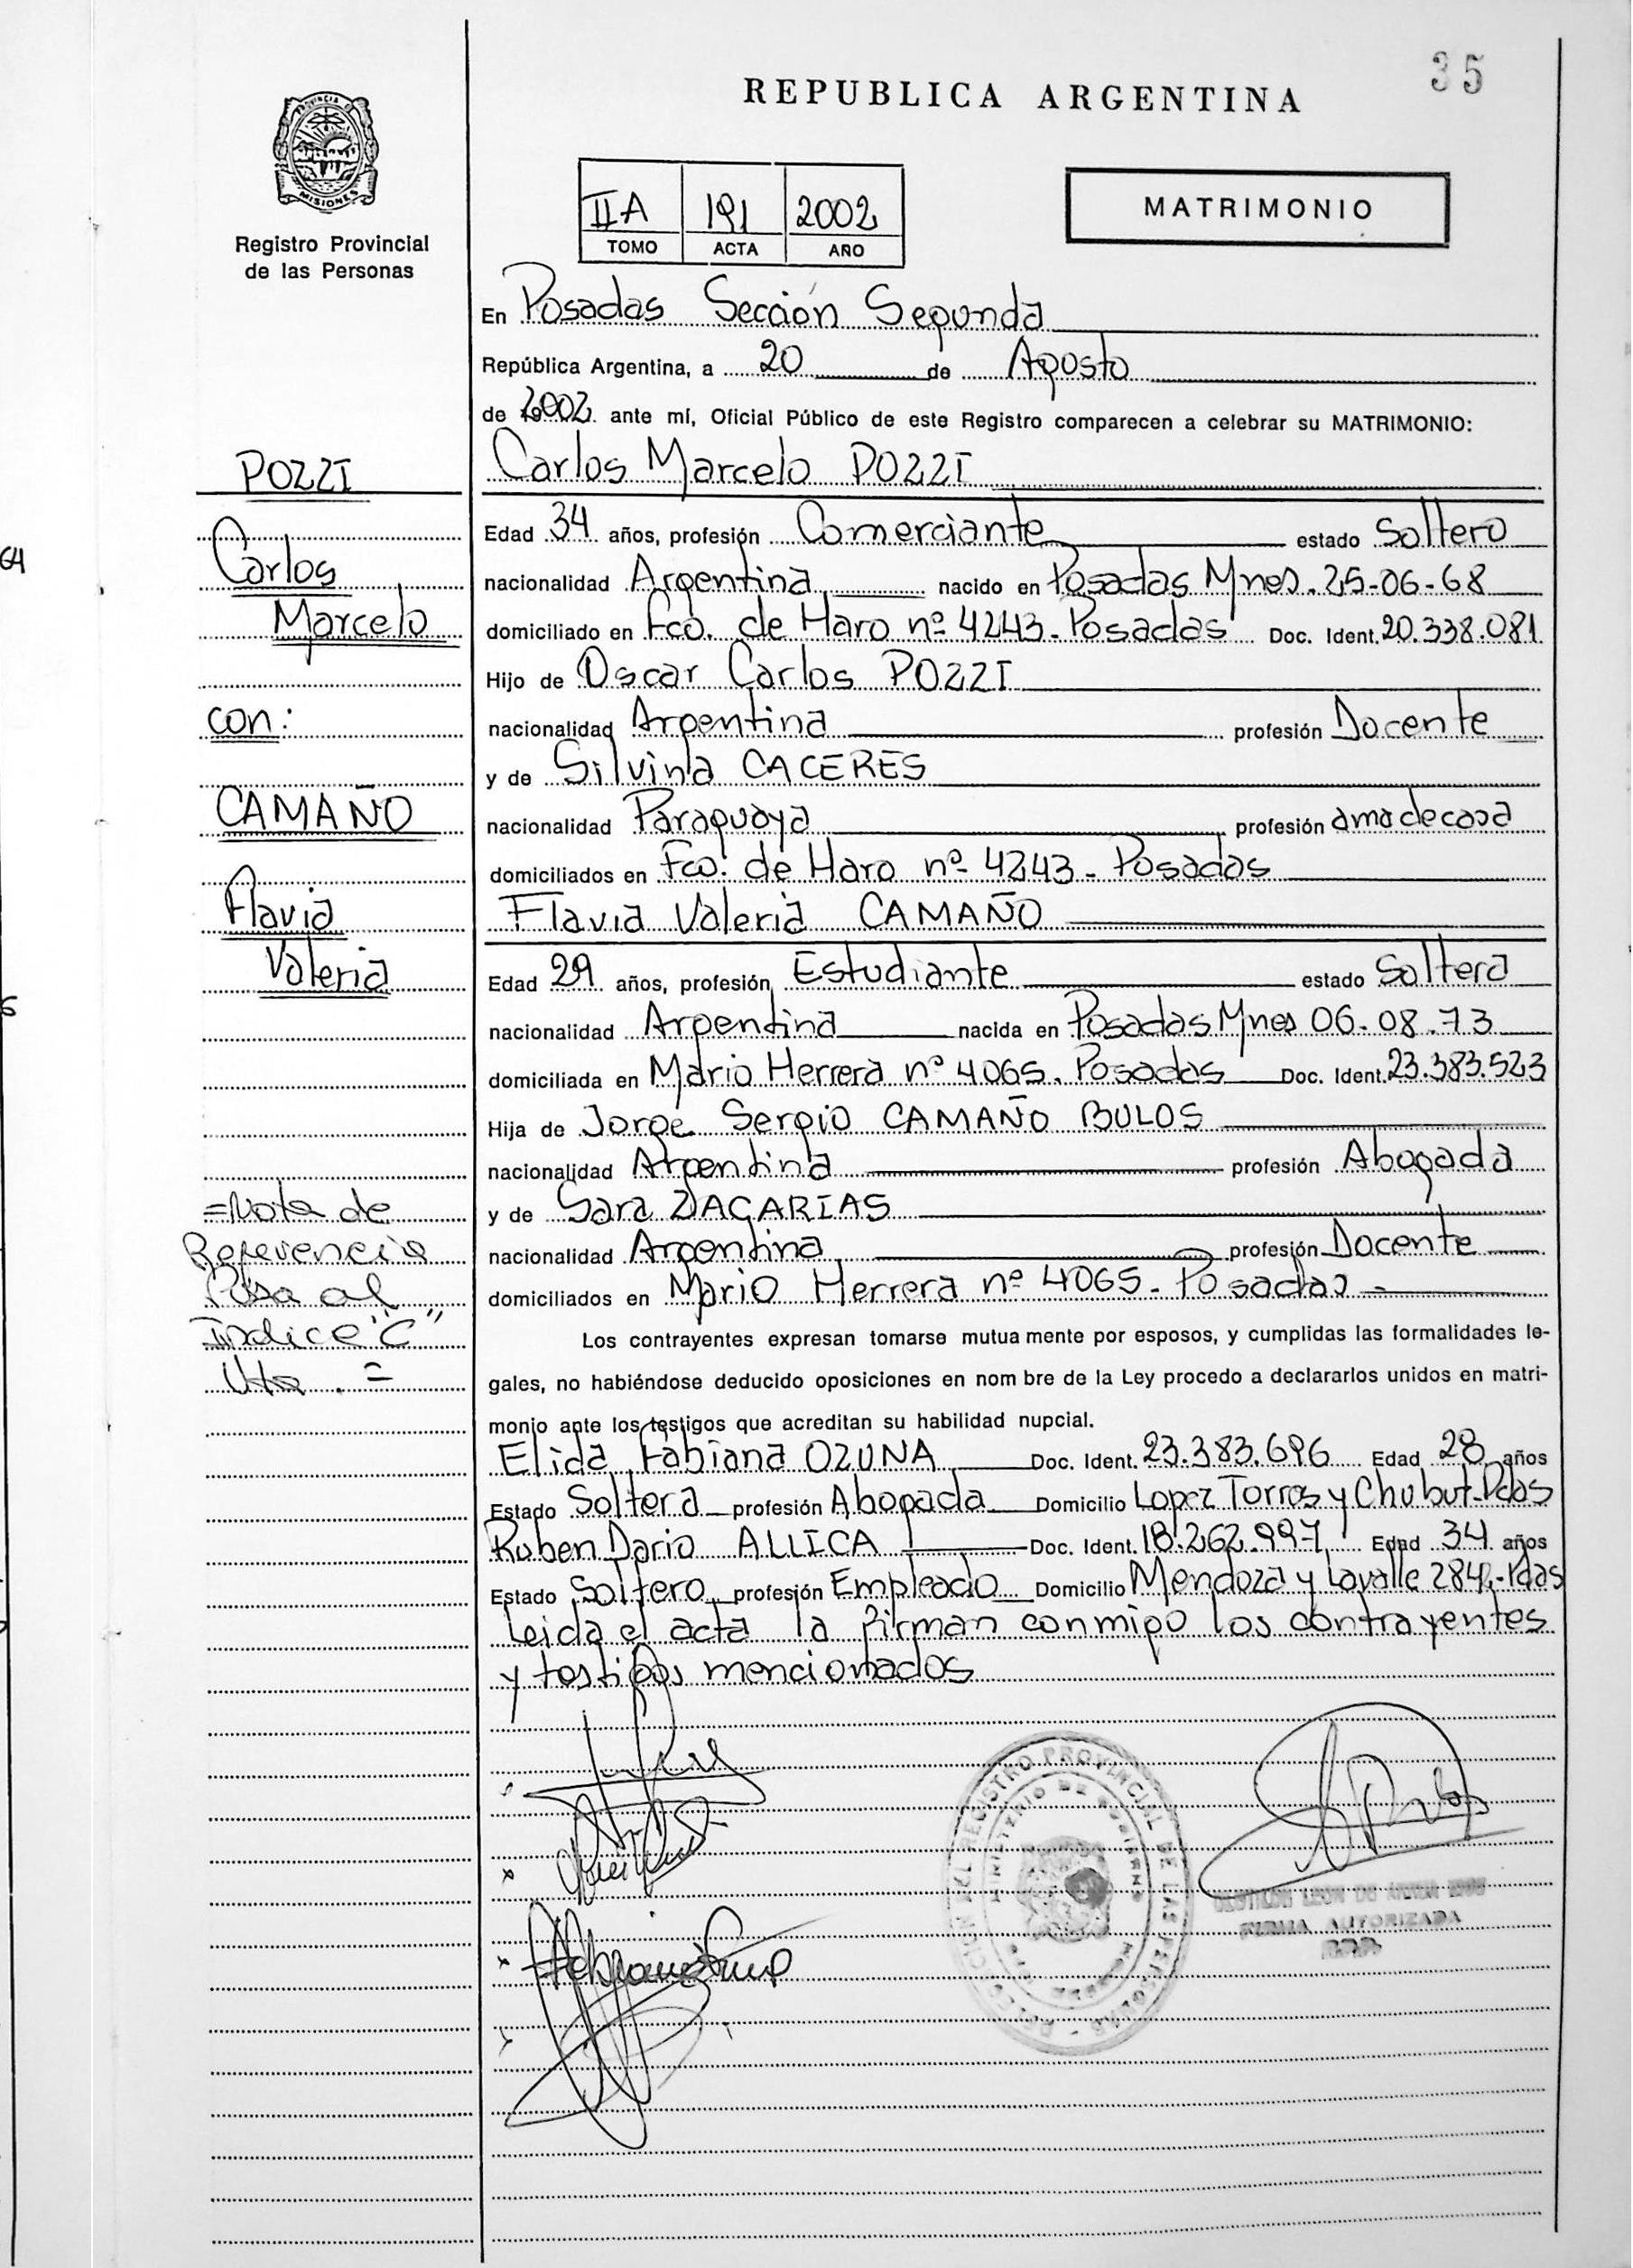 35
REPUBLICA ARGENTINA
PROVINCIA DE
MISIONES
Registro Provincial
de las Personas
IIA 191 2002
TOMO ACTA AÑO
MATRIMONIO
En Posadas Sección Segunda
República Argentina, a 20 de Agosto
de 2002 ante mí, Oficial Público de este Registro comparecen a celebrar su MATRIMONIO:
POZZI
Carlos
Marcelo
con:
CAMAÑO
Flavia
Valeria
=Nota de
Referencia
Pasa al
Indice "C"
Vta. =
64
Carlos Marcelo POZZI
Edad 34 años, profesión Comerciante estado Soltero
nacionalidad Argentina nacido en Posadas Mnes. 25-06-68
domiciliado en Fco. de Haro nº 4243. Posadas Doc. Ident. 20.338.081
Hijo de Oscar Carlos POZZI
nacionalidad Argentina profesión Docente
y de Silvina CACERES
nacionalidad Paraguaya profesión ama de casa
domiciliados en Fco. de Haro nº 4243 - Posadas
Flavia Valeria CAMAÑO
Edad 29 años, profesión Estudiante estado Soltera
nacionalidad Argentina nacida en Posadas Mnes 06-08-73
domiciliada en Mario Herrera nº 4065. Posadas Doc. Ident. 23.383.523
Hija de Jorge Sergio CAMAÑO BULOS
nacionalidad Argentina profesión Abogada
y de Sara ZACARIAS
nacionalidad Argentina profesión Docente
domiciliados en Mario Herrera nº 4065 - Posadas
Los contrayentes expresan tomarse mutua mente por esposos, y cumplidas las formalidades le-
gales, no habiéndose deducido oposiciones en nom bre de la Ley procedo a declararlos unidos en matri-
monio ante los testigos que acreditan su habilidad nupcial.
Elida Fabiana OZUNA Doc. Ident. 23.383.696 Edad 28 años
Estado Soltera profesión Abogada Domicilio Lopez Torres y Chubut-Pdas
Ruben Dario ALLICA Doc. Ident. 18.262.997 Edad 34 años
Estado Soltero profesión Empleado Domicilio Mendoza y Lavalle 284,-Pdas
Leida el acta la firman conmigo los contrayentes
y testigos mencionados
REGISTRO PROVINCIAL DE LAS PERSONAS
MINISTERIO DE GOBIERNO
FIRMA AUTORIZADA